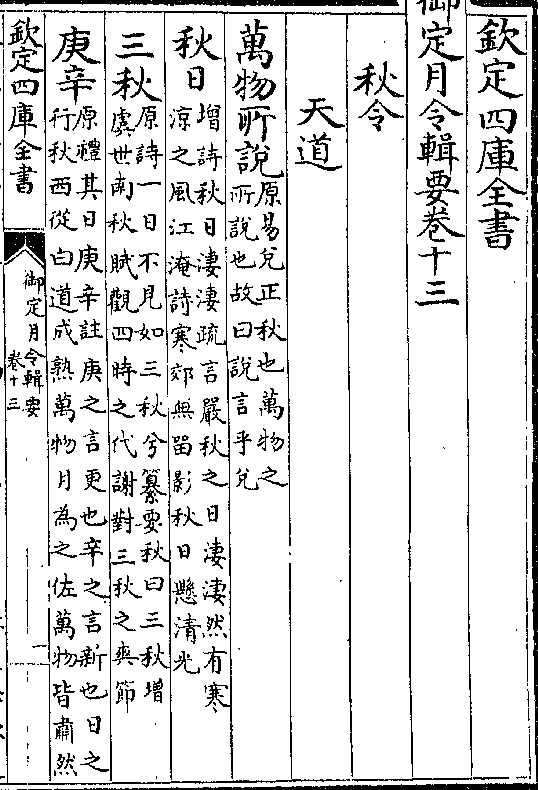 欽定四庫全書
御定月令輯要卷十三
秋令
天道
萬物所說原易兌正秋也萬物之
所說也故曰說言乎兌
秋日增詩秋日淒淒疏言嚴秋之日淒淒然有寒
涼之風江淹詩寒郊無留影秋日懸清光
三秋原詩一日不見如三秋兮纂要秋曰三秋增
虞世南秋賦觀四時之代謝對三秋之爽節
庚辛原禮其日庚辛註庚之言更也辛之言新也日之
行秋西從白道成熟萬物月為之佐萬物皆肅然
欽定四庫全書
御定月令輯要
卷十三
一